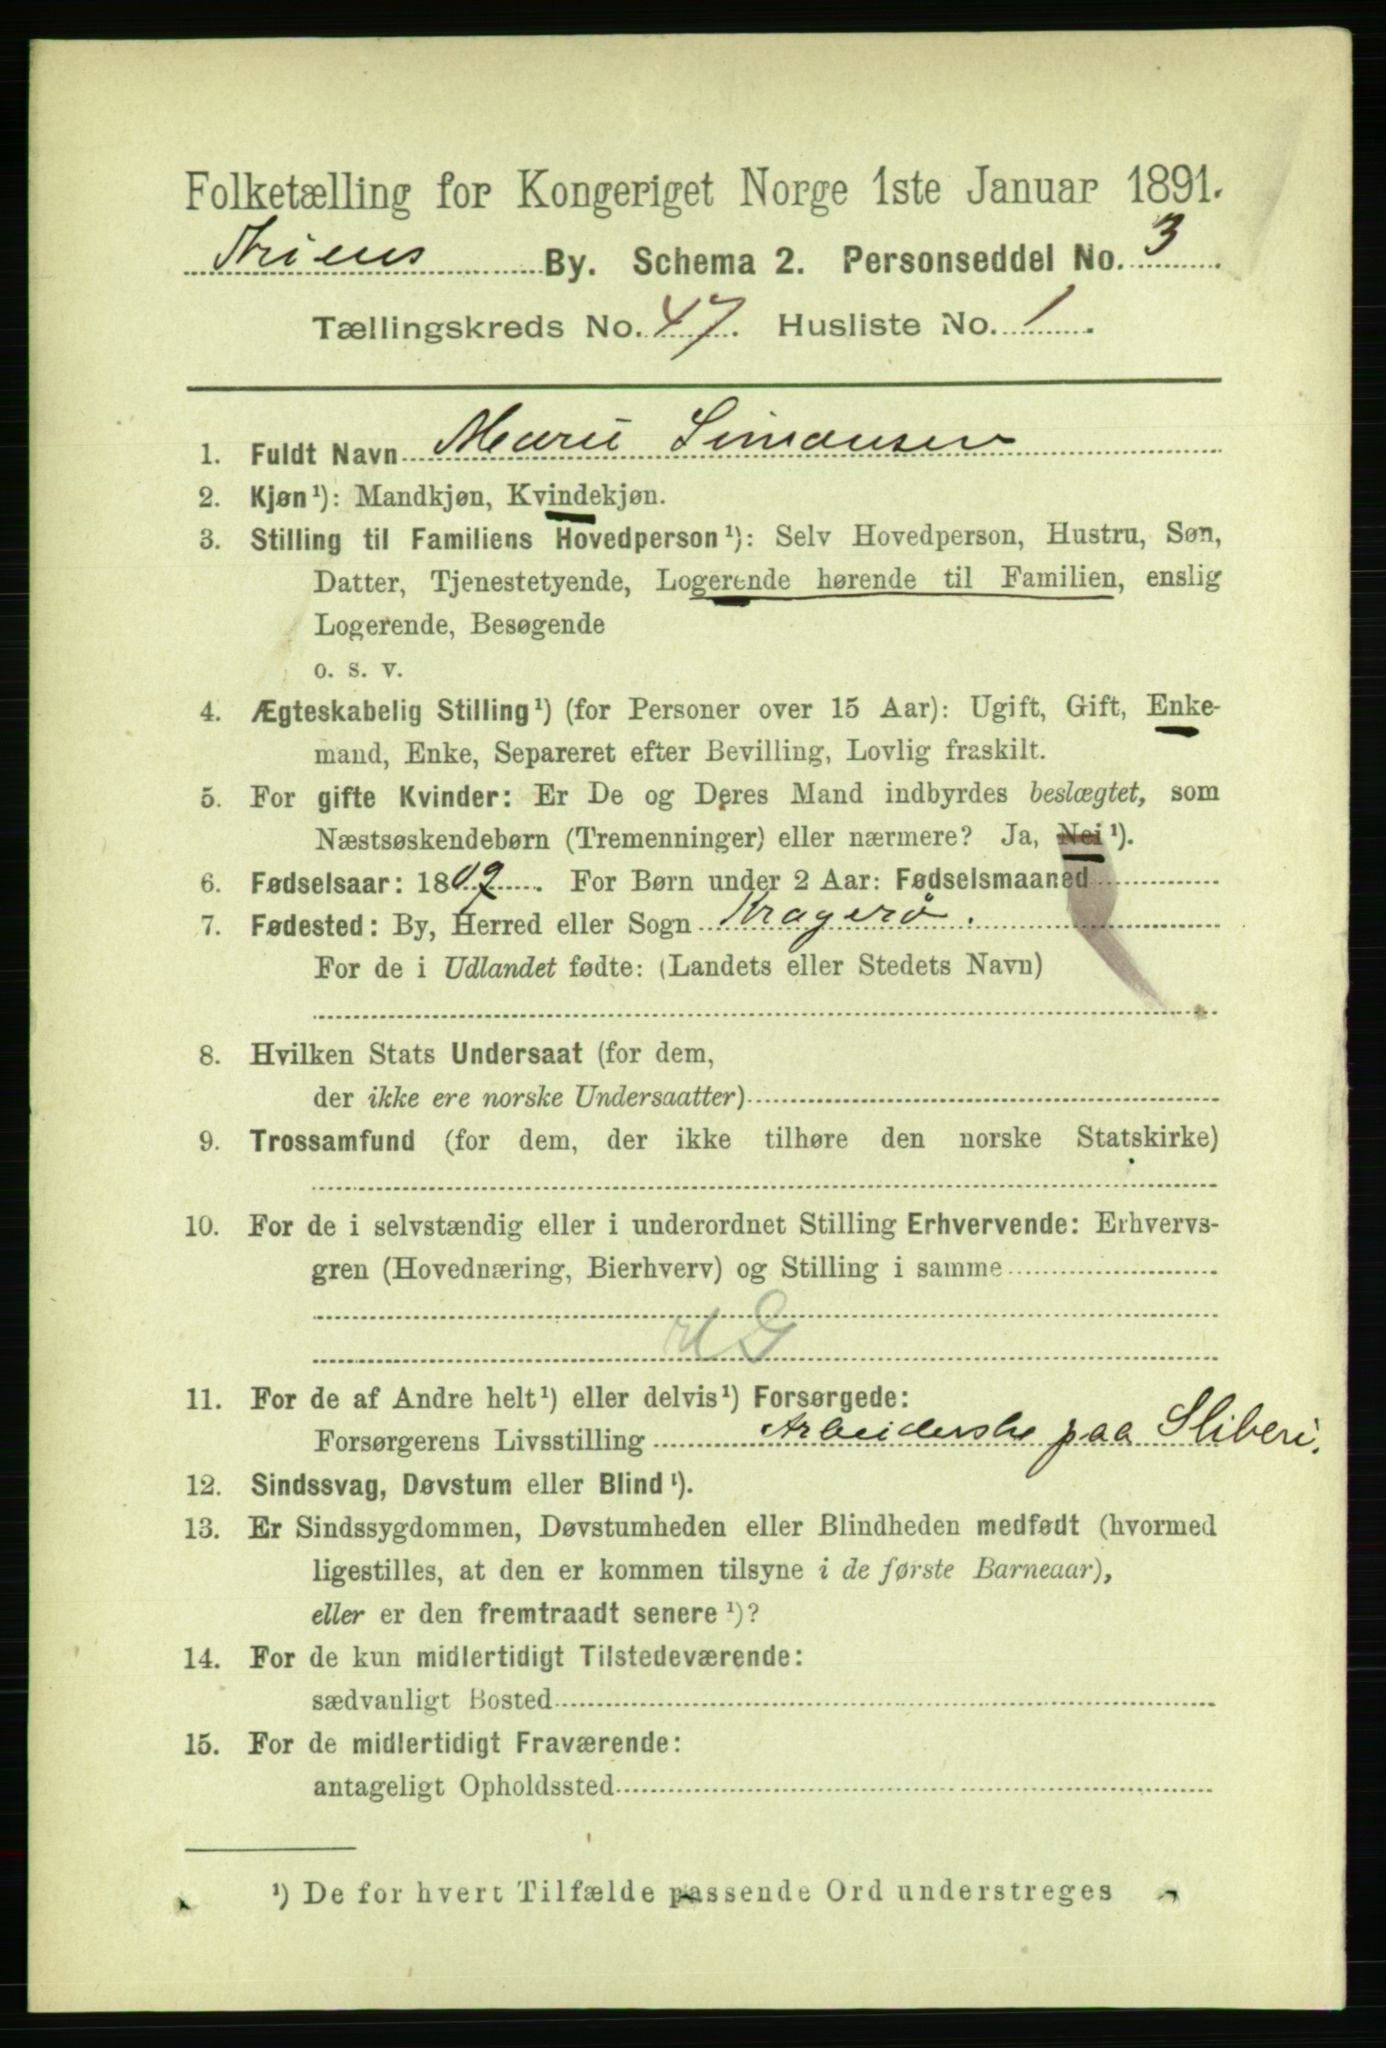 Folketælling for Kongeriget Norge 1ste Januar 1891.
By. Schema 2. Personseddel No. 3
Tællingskreds No. 47. Husliste No. 1.
1. Fuldt Navn Marie Simonsen
2. Kjøn¹): Mandkjøn, Kvindekjøn.
3. Stilling til Familiens Hovedperson¹): Selv Hovedperson, Hustru, Søn,
Datter, Tjenestetyende, Logerende hørende til Familien, enslig
Logerende, Besøgende
o. s. v.
4. Ægteskabelig Stilling¹) (for Personer over 15 Aar): Ugift, Gift, Enke-
mand, Enke, Separeret efter Bevilling, Lovlig fraskilt.
5. For gifte Kvinder: Er De og Deres Mand indbyrdes beslægtet, som
Næstsøskendebørn (Tremenninger) eller nærmere? Ja, Nei¹).
6. Fødselsaar: 1809. For Børn under 2 Aar: Fødselsmaaned
7. Fødested: By, Herred eller Sogn Kragerø.
For de i Udlandet fødte: (Landets eller Stedets Navn)
8. Hvilken Stats Undersaat (for dem,
der ikke ere norske Undersaatter)
9. Trossamfund (for dem, der ikke tilhøre den norske Statskirke)
10. For de i selvstændig eller i underordnet Stilling Erhvervende: Erhvervs-
gren (Hovednæring, Bierhverv) og Stilling i samme
11. For de af Andre helt¹) eller delvis¹) Forsørgede:
Forsørgerens Livsstilling Arbeiderske paa Sliberi.
12. Sindssvag, Døvstum eller Blind¹).
13. Er Sindssygdommen, Døvstumheden eller Blindheden medfødt (hvormed
ligestilles, at den er kommen tilsyne i de første Barneaar),
eller er den fremtraadt senere¹)?
14. For de kun midlertidigt Tilstedeværende:
sædvanligt Bosted
15. For de midlertidigt Fraværende:
antageligt Opholdssted
¹) De for hvert Tilfælde passende Ord understreges